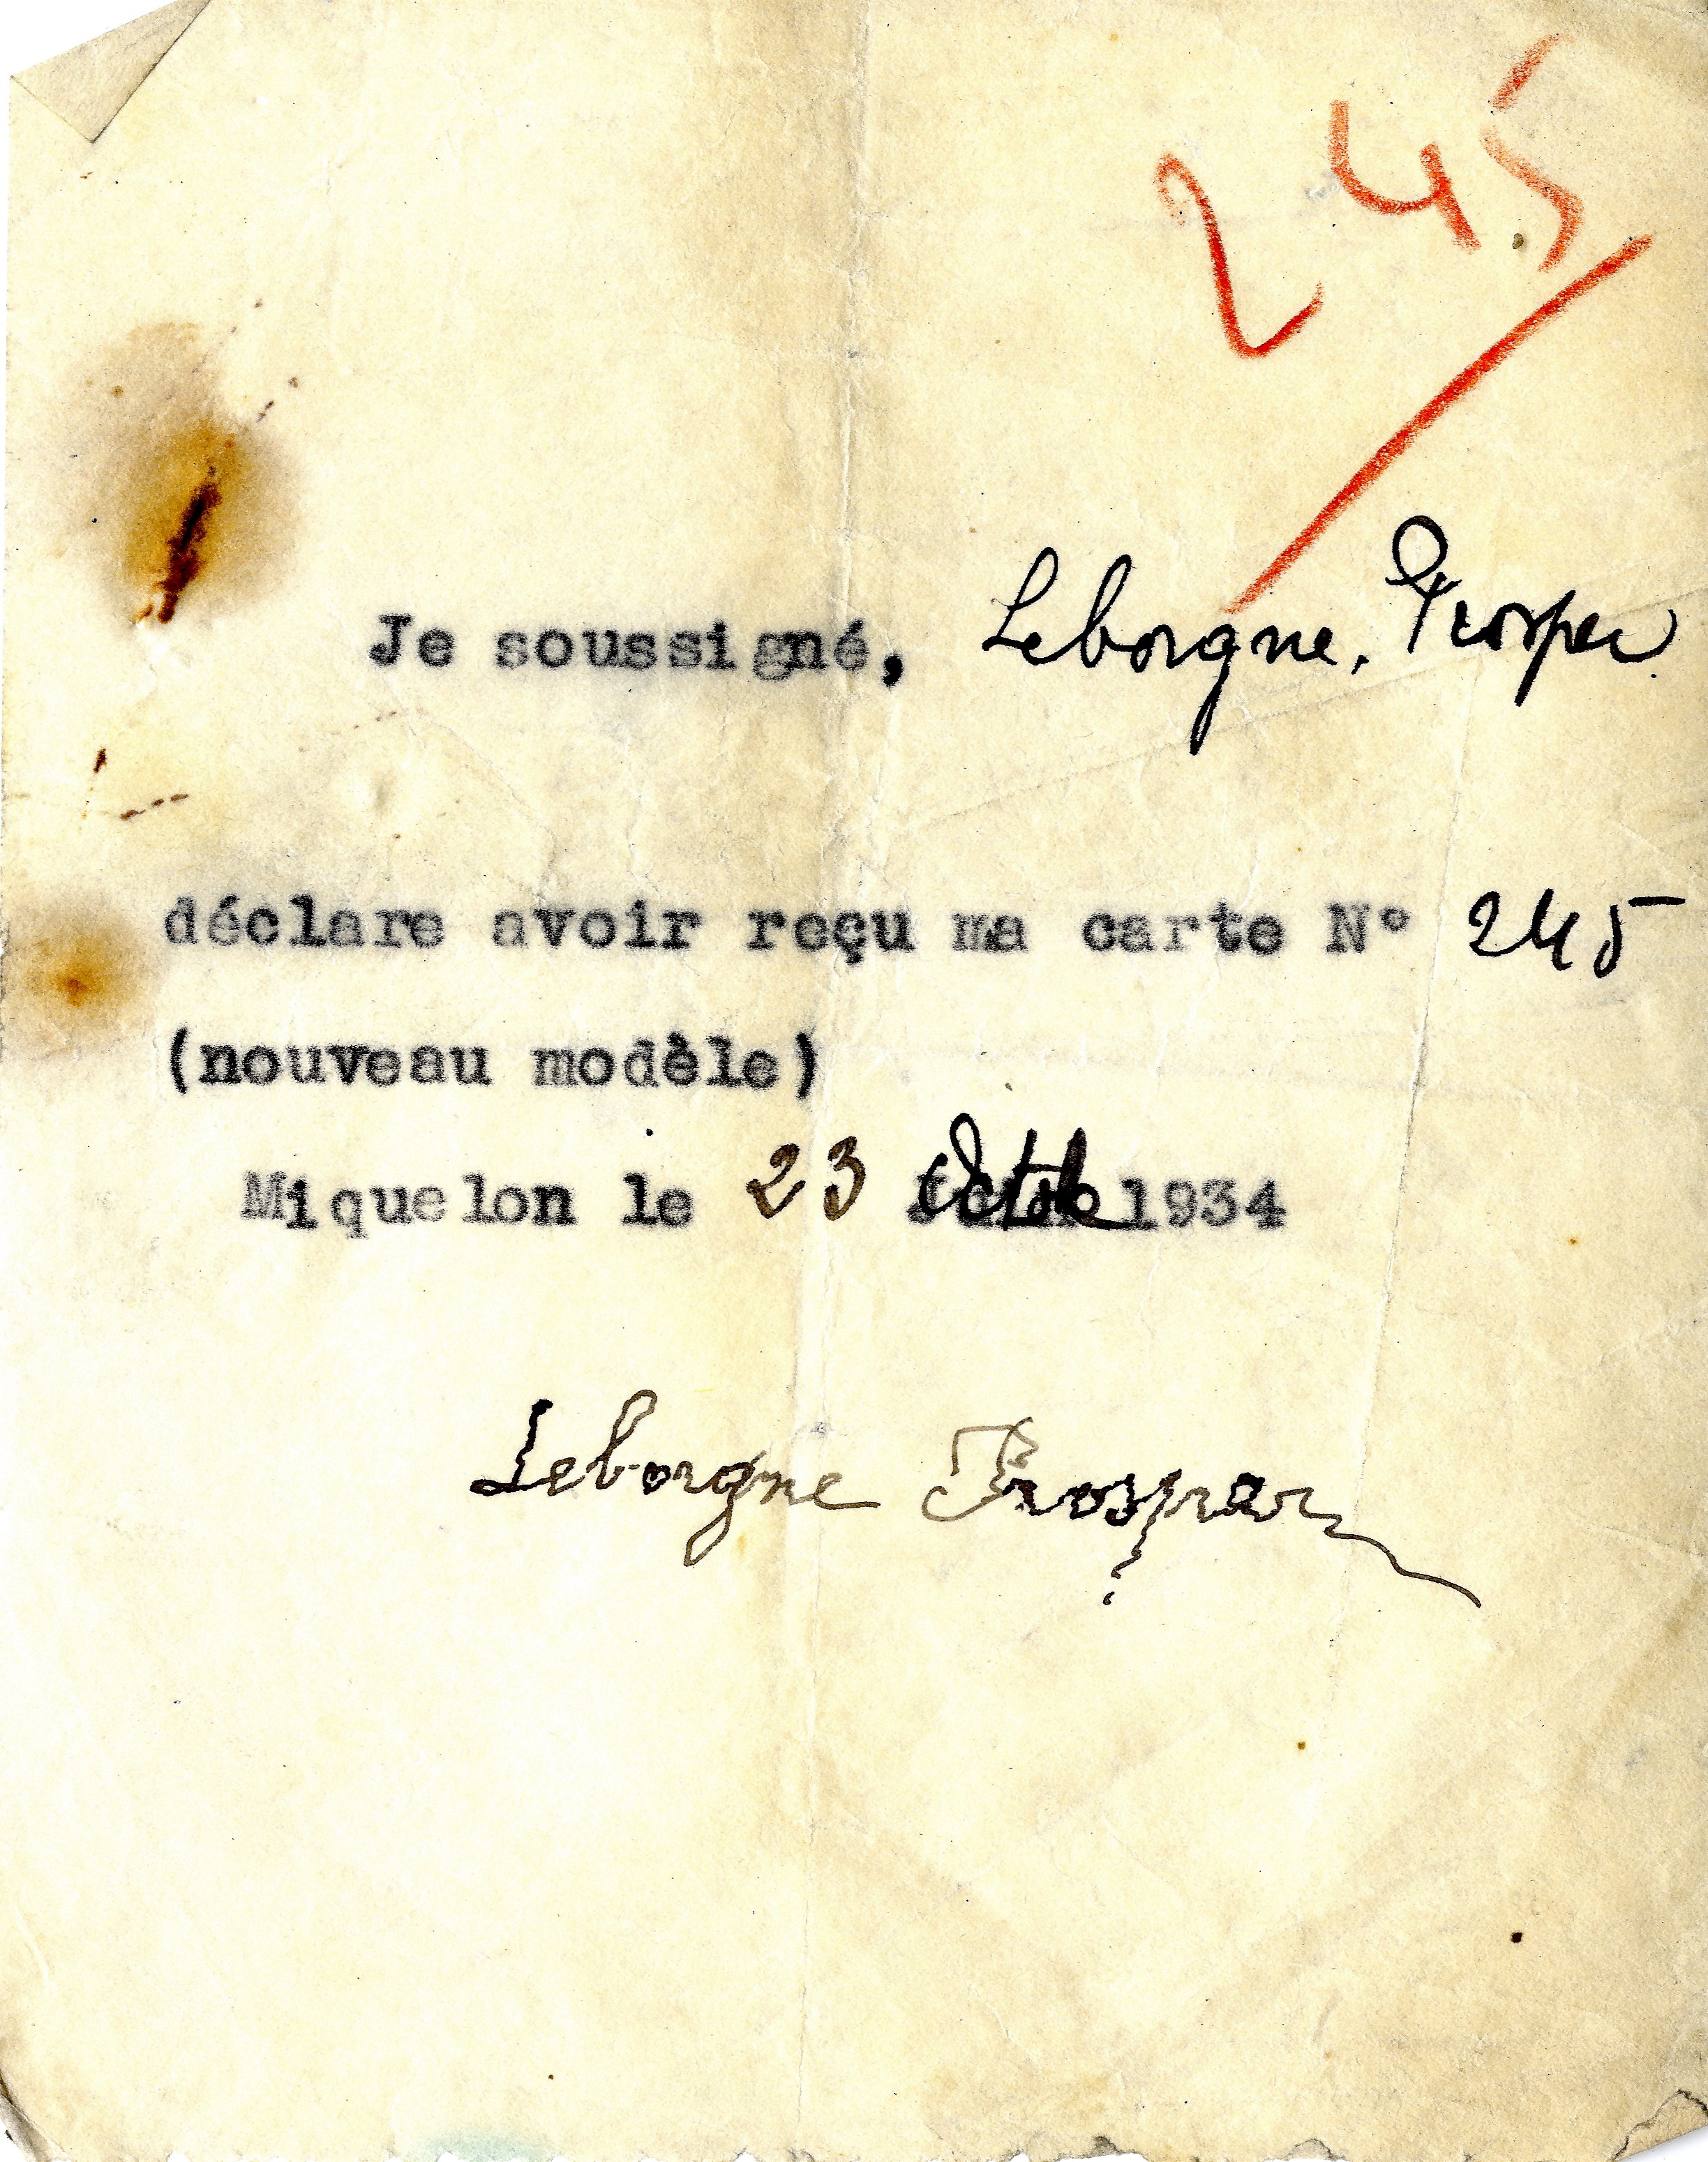 245
Je soussigné, Leborgne, Prosper
déclare avoir reçu ma carte N° 245
(nouveau modèle)
Miquelon le 23 Octob 1934
Leborgne Prosper